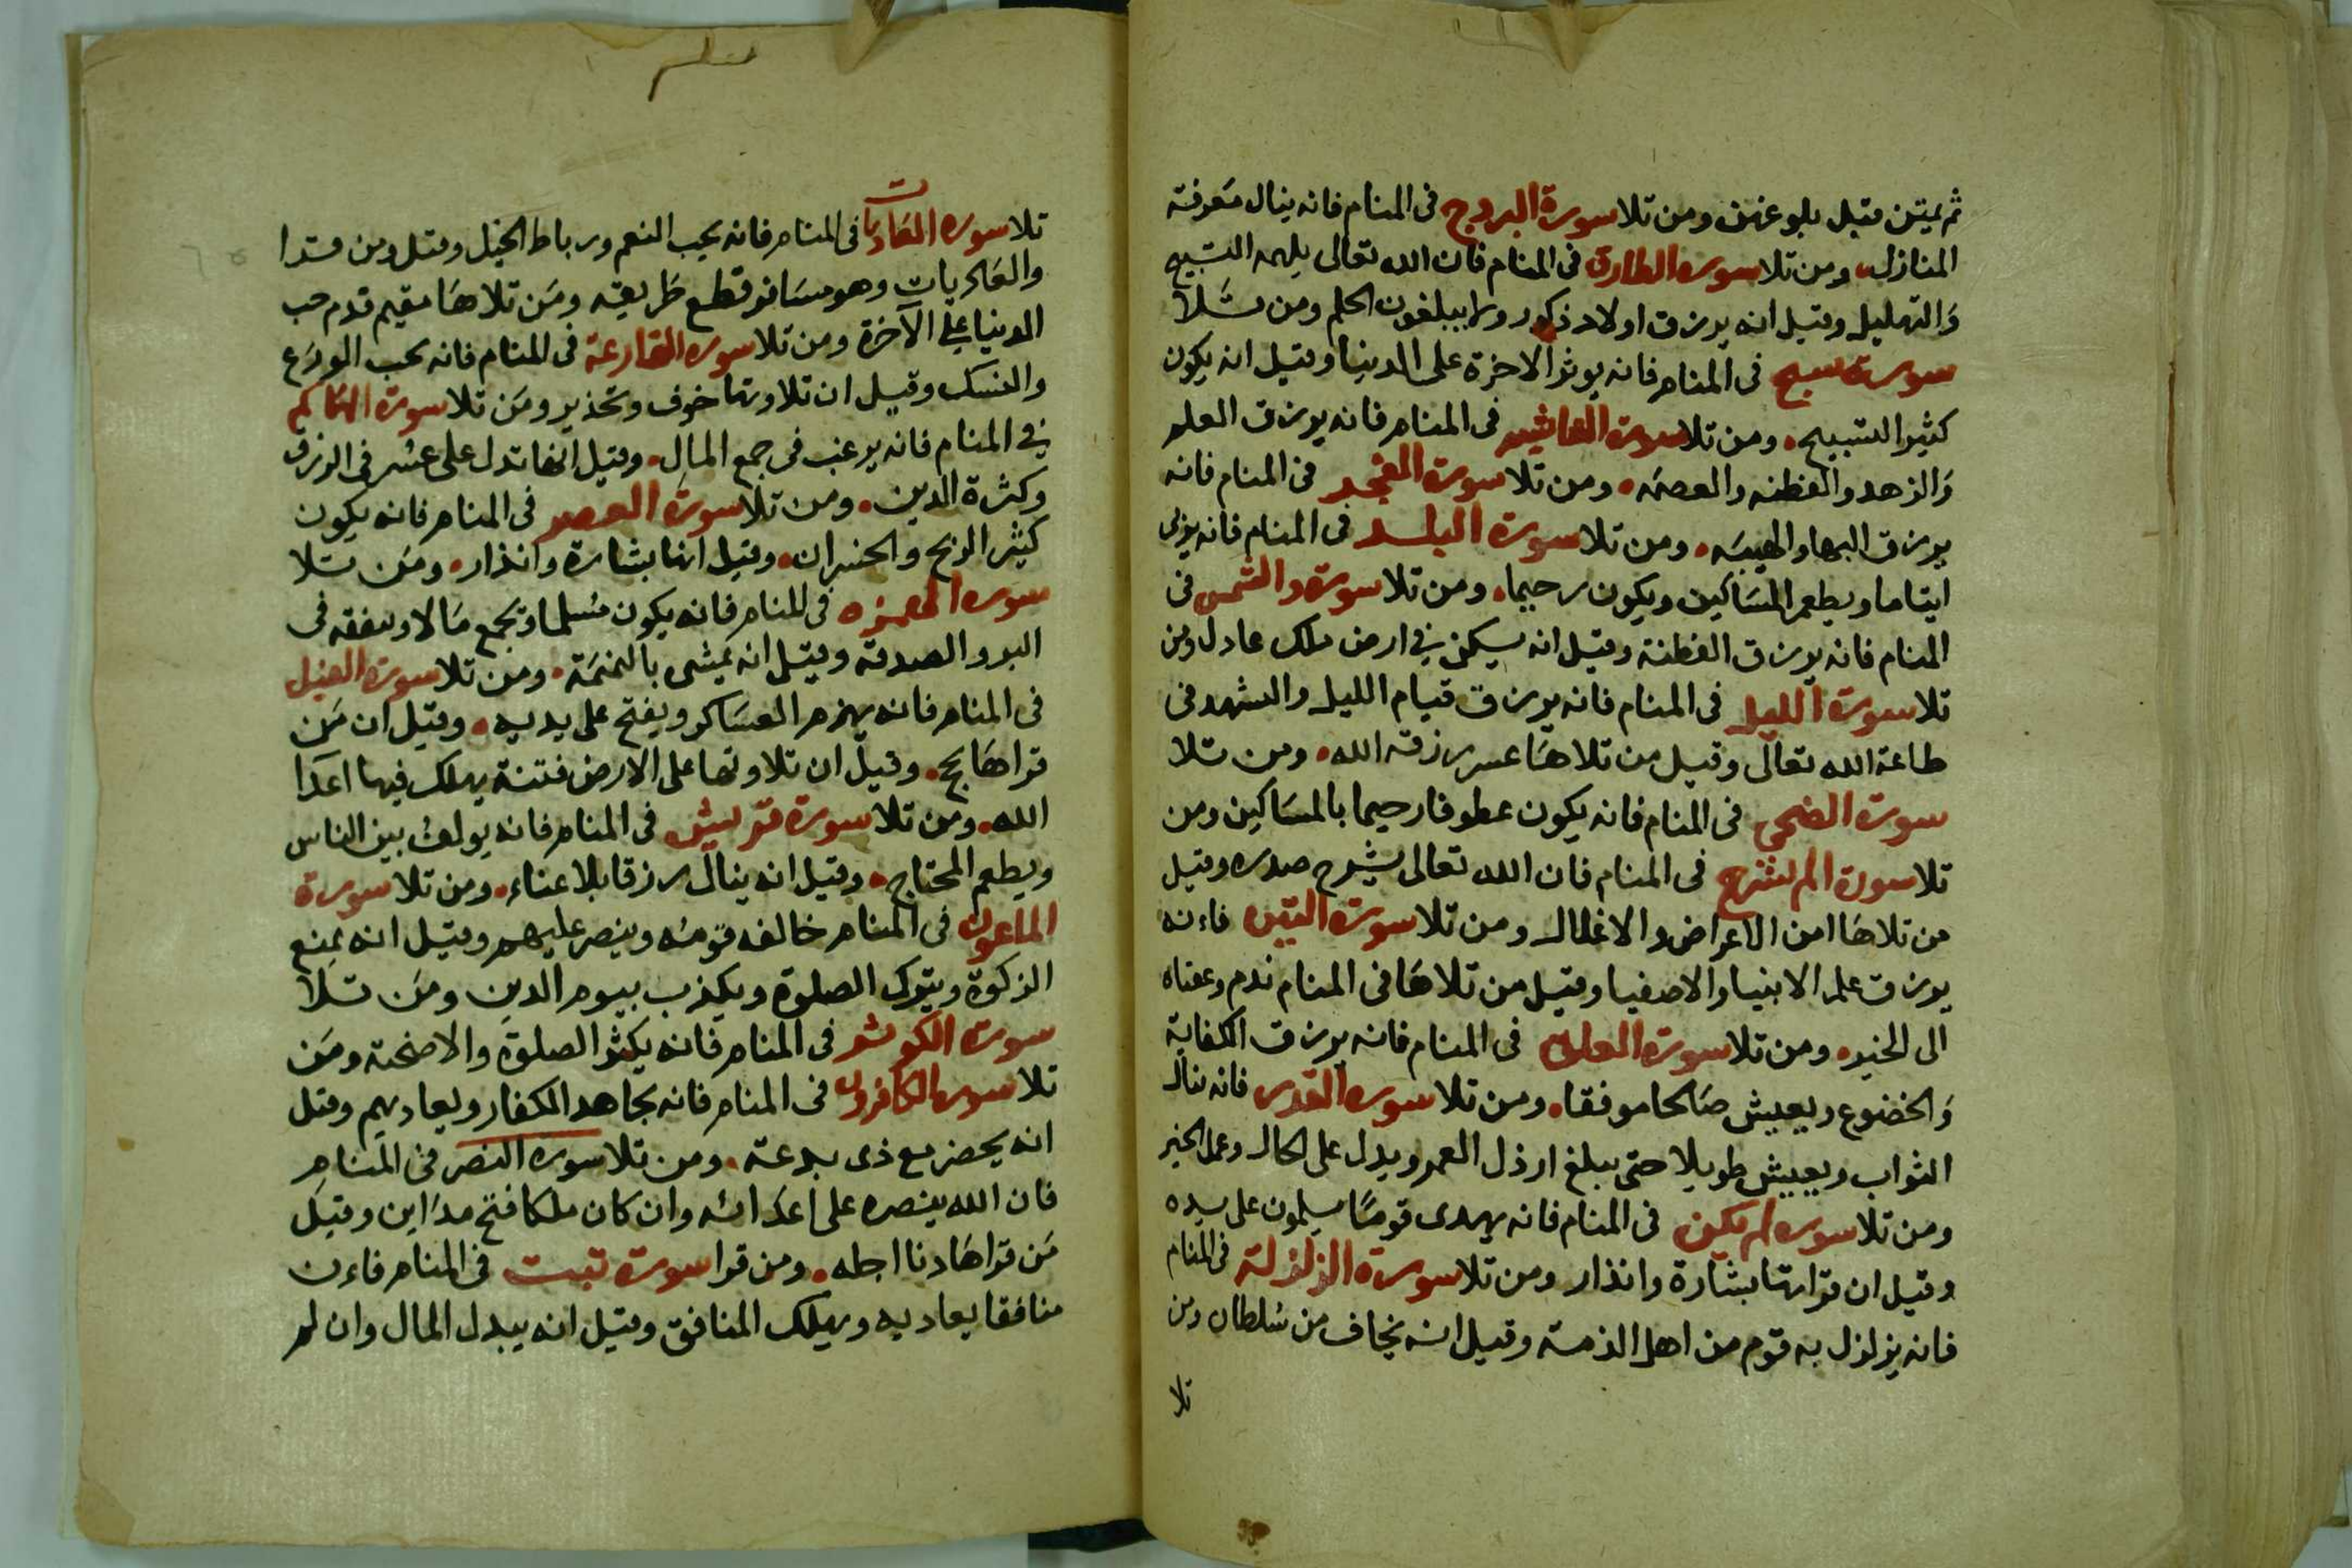 ثم يمتن قبل بلوغهن ومن تلا سورة البروج فى المنام فانه ينال معرفة
المنازل ومن تلا سوره الطارق فى المنام فان الله تعالى يلهمه التسبيح
والتهليل وقيل انه يرزق اولاد ذكور ولا يبلغون الحلم ومن تلا
سورة سبح فى المنام فانه يوثر الاخرة على الدنيا وقيل انه يكون
كثير التسبيح ومن تلا سورة الغاشيه فى المنام فانه يرزق العلم
والزهد والفطنه والعصمه ومن تلا سورة الفجر فى المنام فانه
يرزق البها والهيبه ومن تلا سورة البلد فى المنام فانه يولى
ايتاما ويطعم المساكين ويكون رحيما ومن تلا سورة والشمس فى
المنام فانه يرزق الفطنة وقيل انه يسكن فى ارض ملك عادل ومن
تلا سورة الليل فى المنام فانه يرزق قيام الليل والتهجد فى
طاعة الله تعالى وقيل من تلاها عسر رزقه الله ومن تلا
سورة الضحى فى المنام فانه يكون عطوفا رحيما بالمساكين ومن
تلا سورة الم نشرح فى المنام فان الله تعالى يشرح صدره وقيل
من تلاها امن الاعراض والاغلال ومن تلا سورة التين فاءنه
يرزق علم الانبيا والاصفيا وقيل من تلاها فى المنام ندم وعقباه
الى الخير ومن تلا سورة العلق فى المنام فانه يرزق الكفاية
والخضوع ويعيش صالحا موفقا ومن تلا سوره القدر فانه ينال
الثواب ويعيش طويلا حتى يبلغ ارذل العمر ويدل على الحال وعمل الخير
ومن تلا سوره لم يكن فى المنام فانه يهدى قوما يسلمون على يده
وقيل ان قراتها بشارة وانذار ومن تلا سورة الزلزلة فى المنام
فانه يزلزل به قوم من اهل الذمة وقيل انه يخاف من سلطان ومن
تلا
تلا سوره العاديات فى المنام فانه يحب النعم ورباط الخيل وقيل ومن قرا
والعاديات وهو مسافر قطع طريقه ومن تلاها مقيم قدم حب
الدنيا على الآخرة ومن تلا سوره القارعة فى المنام فانه يحب الورع
والنسك وقيل ان تلاوتها خوف وتحذير ومن تلا سورة الهاكم
فى المنام فانه يرغب فى جمع المال وقيل انها تدل على عسر فى الرزق
وكثرة الدين ومن تلا سورة العصر فى المنام فانه يكون
كثير الربح والخسران وقيل انها بشارة وانذار ومن تلا
سوره الهمزه فى المنام فانه يكون مسلما ويجمع مالا وينفقه فى
البر والصدقة وقيل انه يمشى بالنميمة ومن تلا سورة الفيل
فى المنام فانه يهزم العساكر ويفتح على يديه وقيل ان من
قراها يحج وقيل ان تلاوتها على الارض فتنة يهلك فيها اعدا
الله ومن تلا سورة قريش فى المنام فانه يولف بين الناس
ويطعم المحتاج وقيل انه ينال رزقا بلا عناء ومن تلا سورة
الماعون فى المنام خالفه قومه وينصر عليهم وقيل انه يمنع
الزكوة ويترك الصلوة ويكذب بيوم الدين ومن تلا
سورة الكوثر فى المنام فانه يكثر الصلوة والاضحية ومن
تلا سوره الكافرون فى المنام فانه يجاهد الكفار ويعاديهم وقيل
انه يحضر مع ذى بدعة ومن تلا سورة النصر فى المنام
فان الله ينصره على اعدائه وان كان ملكا فتح مداين وقيل
من قراها دنا اجله ومن قرا سورة تبت فى المنام فاءن
منافقا يعاديه ويهلك المنافق وقيل انه يبدل المال وان لم